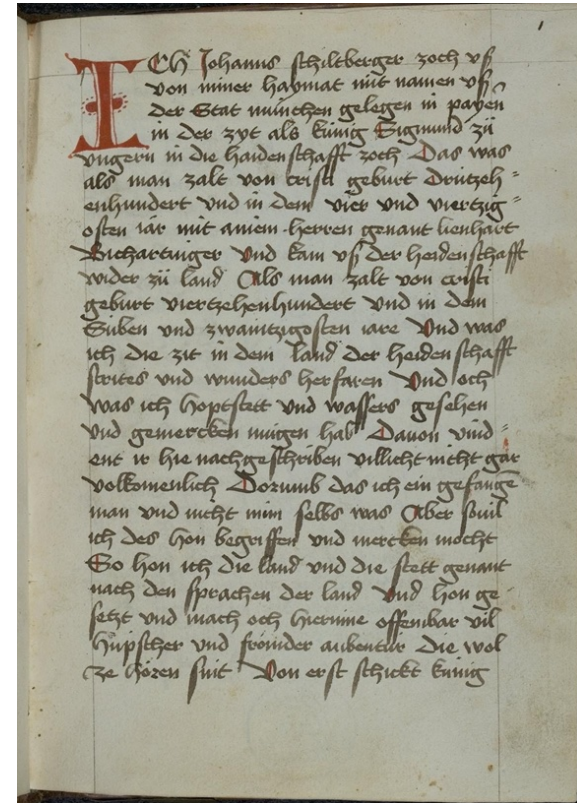 1
ICh Johanns schiltberger zoch uß
von miner haymat mit namen uß
der Stat münchen gelegen in payeñ
in der zyt als küng Sigmund zü
ungern in die haidenschafft zoch Das was
als man zalt von cristi geburt Drützeh=
enhundert und in dem vier und viertzig=
osten iar mit ainem herren genant lienhart
Richartinger Und kam uß der heidenschafft
wider zü land Als man zalt von cristi
geburt viertzehenhundert Und in dem
Suben und zwaintzigosten iare Und was
ich die zit in dem land der heidenschafft
strites und wunders herfaren Und och
was ich hoptstett und wassers gesehen
Und gemercken mügen hab Davon vind=
ent ir hie nachgeschriben villicht nicht gar
volkomenlich Dorumb das ich ein gefangē
man und nicht min selbs was Aber sovil
ich des hon begriffen und mercken mocht
So hon ich die land und die stett genant
nach den sprachen der land Und hon ge-
setzt und mach och hierinne offenbar vil
hüpscher und frömder aubentür die wol
ze hören sint Von erst schickt küng